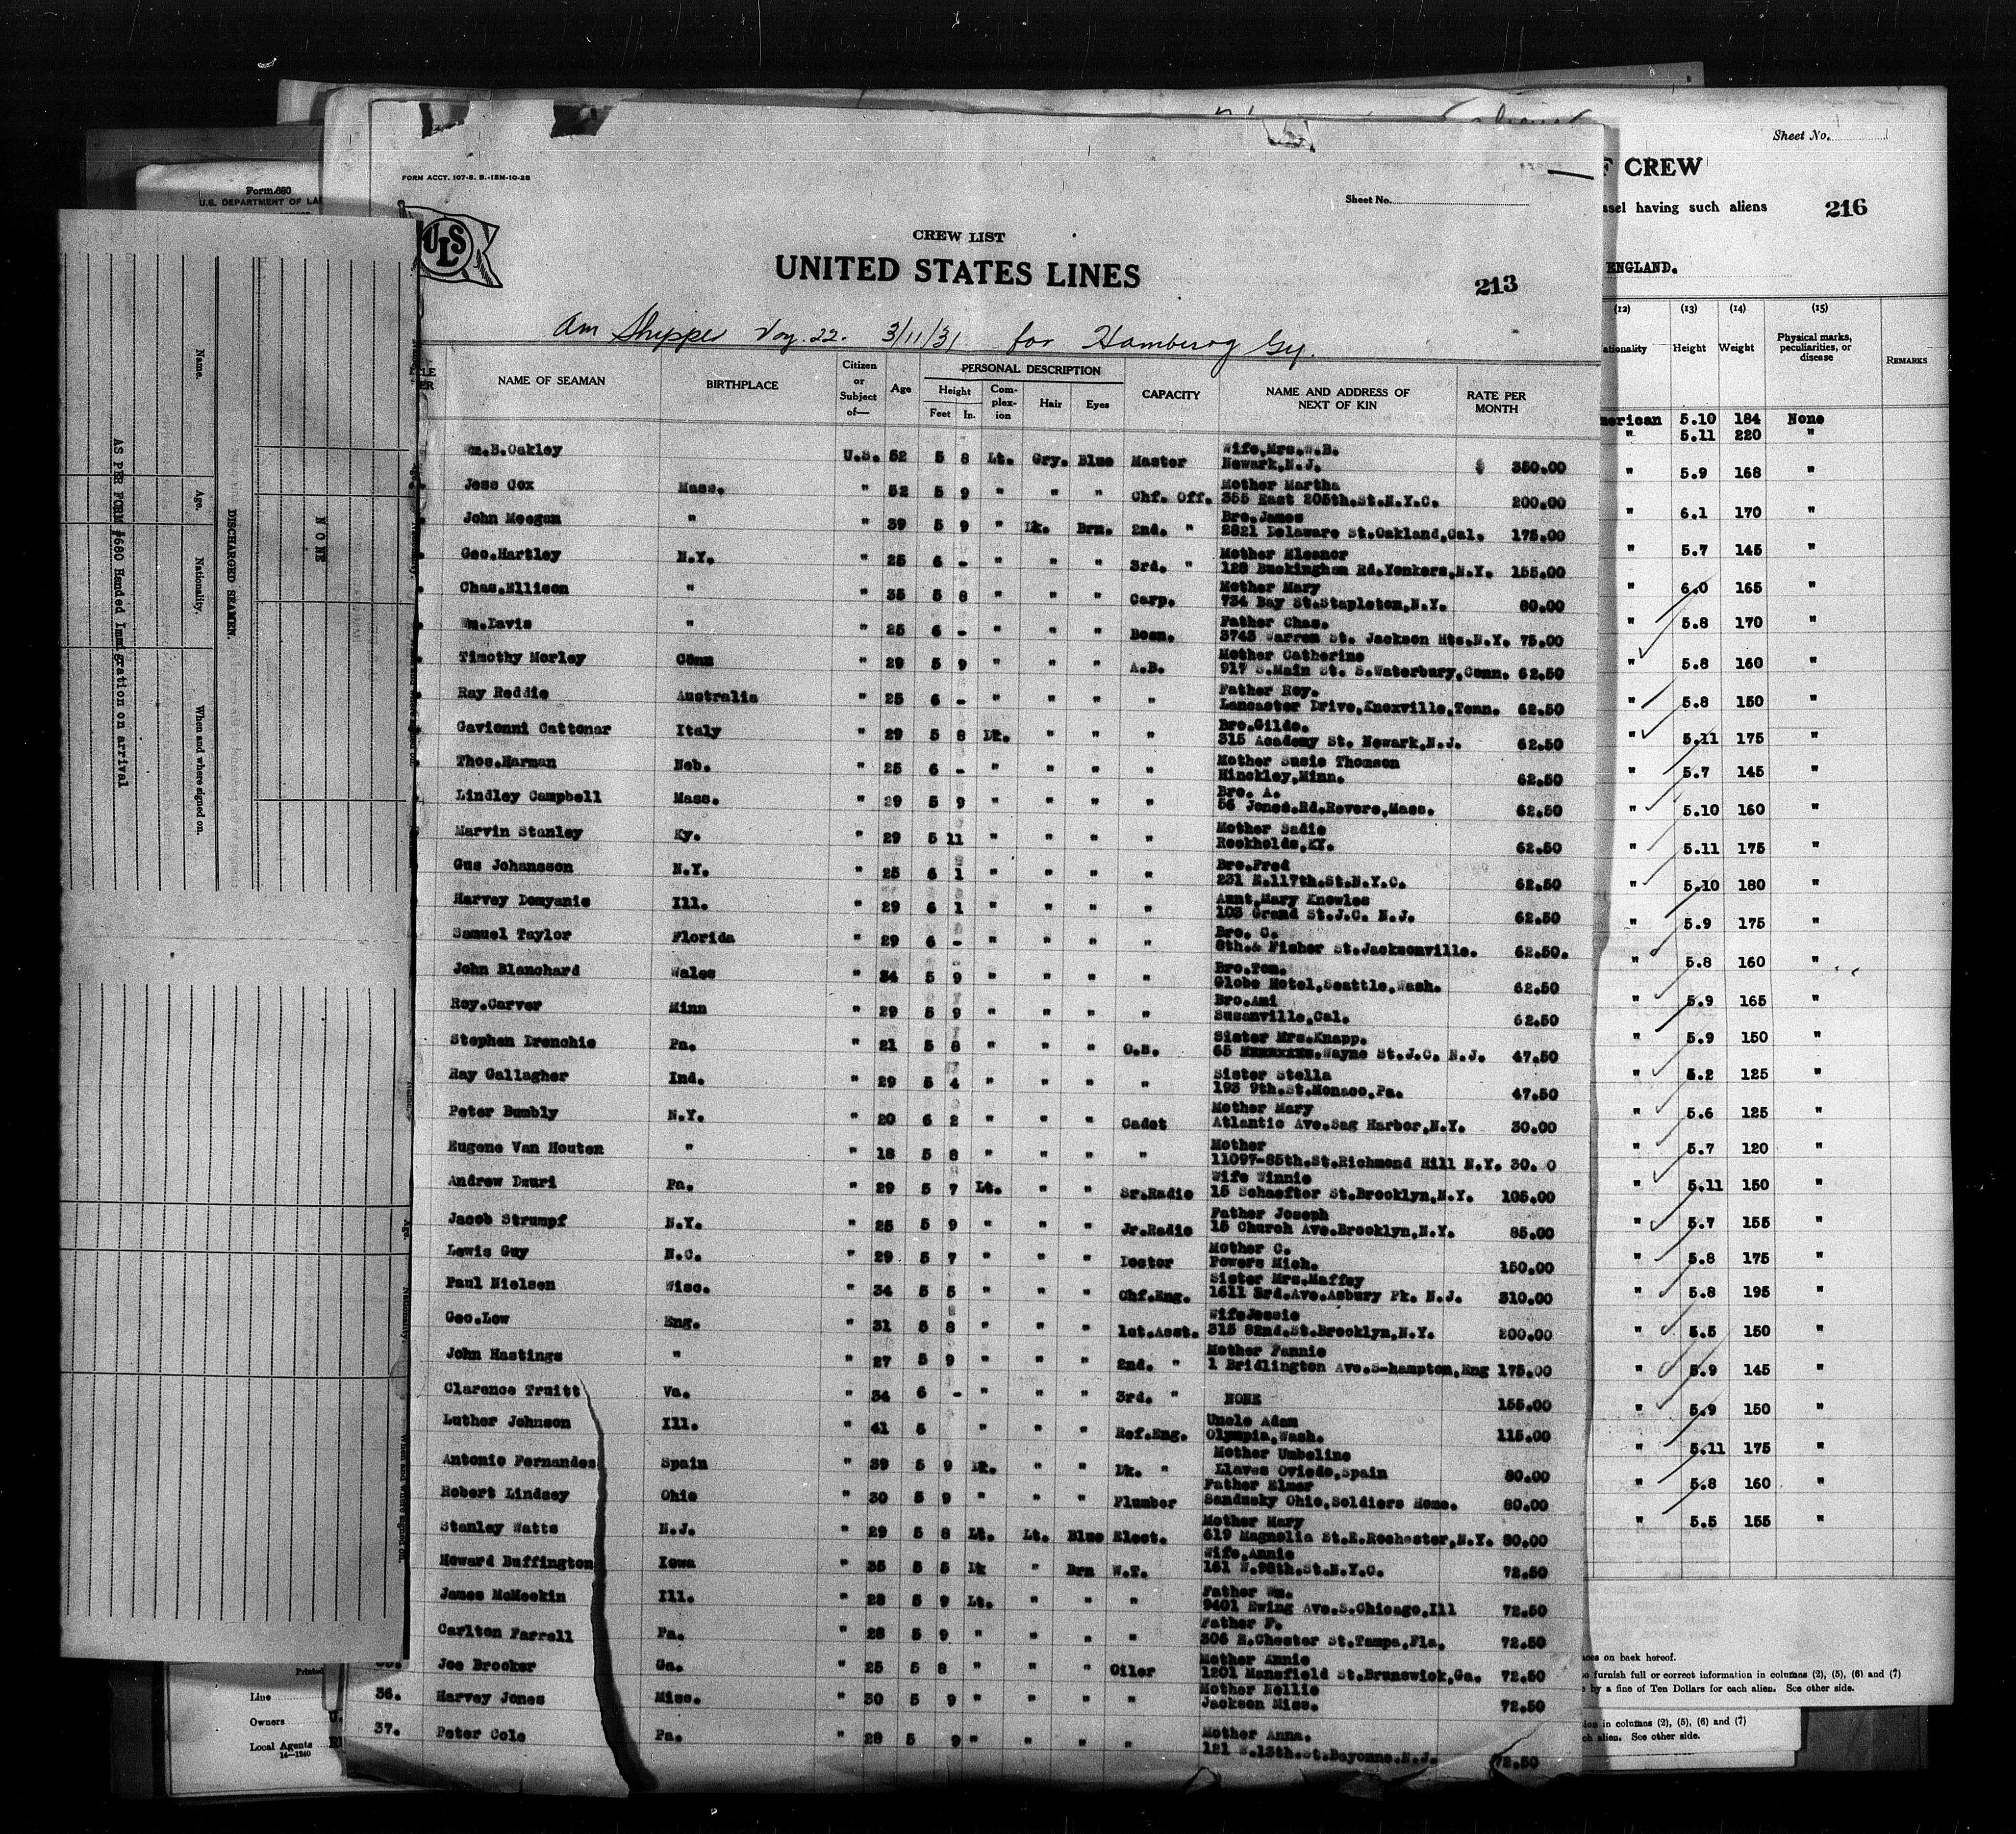 Sheet No.
F CREW
sel having such aliens
216
ENGLAND.
Form 680
U.S. DEPARTMENT OF LA
FORM ACCT. 107-S. B.-15M-10-28
Sheet No.
ULS
CREW LIST
UNITED STATES LINES
213
Am Shipper Voy. 22. 3/11/31 for Hamburg Gy.
NAME OF SEAMAN BIRTHPLACE Citizen or Subject of— Age PERSONAL DESCRIPTION Height Feet In. Complexion Hair Eyes CAPACITY NAME AND ADDRESS OF NEXT OF KIN RATE PER MONTH
Wm.B.Oakley U.S. 52 5 8 Lt. Gry. Blue Master Wife,Mrs.W.B. Newark,N.J. $ 350.00
Jess Cox Mass. " 52 5 9 " " " Chf. Off. Mother Martha 355 East 205th.St.N.Y.C. 200.00
John Meegan " " 39 5 9 " Dk. Brn. 2nd. " Bro.James 2821 Delaware St.Oakland,Cal. 175.00
Geo.Hartley N.Y. " 25 6 - " " " 3rd. " Mother Eleanor 128 Buckingham Rd.Yonkers,N.Y. 155.00
Chas.Ellison " " 35 5 8 " " " Carp. Mother Mary 734 Bay St.Stapleton,N.Y. 80.00
Wm.Davis " " 25 6 - " " " Bosn. Father Chas. 3743 Warren St. Jackson Hts.N.Y. 75.00
Timothy Morley Conn " 29 5 9 " " " A.B. Mother Catherine 917 S.Main St. S.Waterbury,Conn. 62.50
Ray Reddie Australia " 25 6 - " " " " Father Roy. Lancaster Drive,Knoxville,Tenn. 62.50
Gavienni Cattonar Italy " 29 5 8 Dk. " " " Bro.Gildo. 315 Academy St. Newark,N.J. 62.50
Thos.Harman Neb. " 25 6 - " " " " Mother Susie Thomson Hinckley,Minn. 62.50
Lindley Campbell Mass. " 29 5 9 " " " " Bro. A. 56 Jones.Rd.Revere,Mass. 62.50
Marvin Stanley Ky. " 29 5 11 " " " " Mother Sadie Rockholds,KY. 62.50
Gus Johansson N.Y. " 25 6 1 " " " " Bro.Fred 231 E.117th.St.N.Y.C. 62.50
Harvey Domyanie Ill. " 29 6 1 " " " " Aunt,Mary Knowles 103 Grand St.J.C. N.J. 62.50
Samuel Taylor Florida " 29 6 - " " " " Bro. C. 8th.& Fisher St.Jacksonville. 62.50.
John Blanchard Wales " 34 5 9 " " " " Bro.Tom. Globe Hotel,Seattle,Wash. 62.50
Roy.Carver Minn " 29 5 9 " " " " Bro.Ami Susanville,Cal. 62.50
Stephen Drenchie Pa. " 21 5 8 " " " O.S. Sister Mrs.Knapp. 65 Wayne St.J.C. N.J. 47.50
Ray Gallagher Ind. " 29 5 4 " " " " Sister Stella 193 9th.St.Monaco,Pa. 47.50
Peter Bumbly N.Y. " 20 6 2 " " " Cadet Mother Mary Atlantic Ave.Sag Harbor,N.Y. 30.00
Eugene Van Houten " " 18 5 8 " " " " Mother 11097-85th.St.Richmond Hill N.Y. 30.00
Andrew Dzuri Pa. " 29 5 7 Lt. " " Sr.Radio Wife Winnie 15 Schaefter St.Brooklyn,N.Y. 105.00
Jacob Strumpf N.Y. " 25 5 9 " " " Jr.Radio Father Joseph 15 Church Ave.Brooklyn,N.Y. 85.00
Lewis Guy N.C. " 29 5 7 " " " Doctor Mother C. Powers Mich. 150.00
Paul Nielsen Wisc. " 34 5 5 " " " Chf.Eng. Sister Mrs.Maffey 1611 3rd.Ave.Asbury Pk. N.J. 310.00
Geo.Low Eng. " 31 5 8 " " " 1st.Asst. WifeJessie 315 82nd.St.Brooklyn,N.Y. 200.00
John Hastings " " 27 5 9 " " " 2nd. " Mother Fannie 1 Bridlington Ave.S-hampton,Eng 175.00
Clarence Truitt Va. " 34 6 - " " " 3rd. " NONE 155.00
Luther Johnson Ill. " 41 5 " " " Ref.Eng. Uncle Adam Olympia,Wash. 115.00
Antonio Fernandes Spain " 39 5 9 Dk. " " Dk. " Mother Umbeline Llaves Oviedo,Spain 80.00
Robert Lindsey Ohio " 30 5 9 " " " Plumber Father Elmer Sandusky Ohio,Soldiers Home. 80.00
Stanley Watts N.J. " 29 5 8 Lt. Lt. Blue Elect. Mother Mary 619 Magnolia St.E.Rochester,N.Y. 80.00
Howard Buffington Iowa " 35 5 5 Dk " Brn W.T. Wife,Annie 161 W.98th.St.N.Y.C. 72.50
James McMeekin Ill. " 28 5 9 Lt. " " " Father Wm. 9401 Ewing Ave.S.Chicago,Ill 72.50
Carlton Farrell Pa. " 28 5 9 " " " " Father F. 306 E.Chester St.Tampa,Fla. 72.50
Joe Brocker Ga. " 25 5 8 " " " Oiler Mother Annie 1201 Mansfield St.Brunswick,Ga. 72.50
36. Harvey Jones Miss. " 30 5 9 " " " " Mother Nellie Jackson Miss. 72.50
37. Peter Cole Pa. " 28 5 9 " " " " Mother Anna. 121 W.13th.St.Bayonne.N.J. 72.50
AS PER FORM #680 Handed Immigration on arrival
Name. Age. Nationality. When and where signed on.
DISCHARGED SEAMEN.
NONE
(12) (13) (14) (15)
ationality Height Weight Physical marks, peculiarities, or disease REMARKS
merican 5.10 184 None
" 5.11 220 "
" 5.9 168 "
" 6.1 170 "
" 5.7 145 "
" 6.0 165 "
" 5.8 170 "
" 5.8 160 "
" 5.8 150 "
" 5.11 175 "
" 5.7 145 "
" 5.10 160 "
" 5.11 175 "
" 5.10 180 "
" 5.9 175 "
" 5.8 160 "
" 5.9 165 "
" 5.9 150 "
" 5.2 125 "
" 5.6 125 "
" 5.7 120 "
" 5.11 150 "
" 5.7 155 "
" 5.8 175 "
" 5.8 195 "
" 5.5 150 "
" 5.9 145 "
" 5.9 150 "
" 5.11 175 "
" 5.8 160 "
" 5.5 155 "
on back hereof.
furnish full or correct information in columns (2), (5), (6) and (7)
by a fine of Ten Dollars for each alien. See other side.
in columns (2), (5), (6) and (7)
ch alien. See other side.
Printed
Line
Owners
Local Agents
14—1240